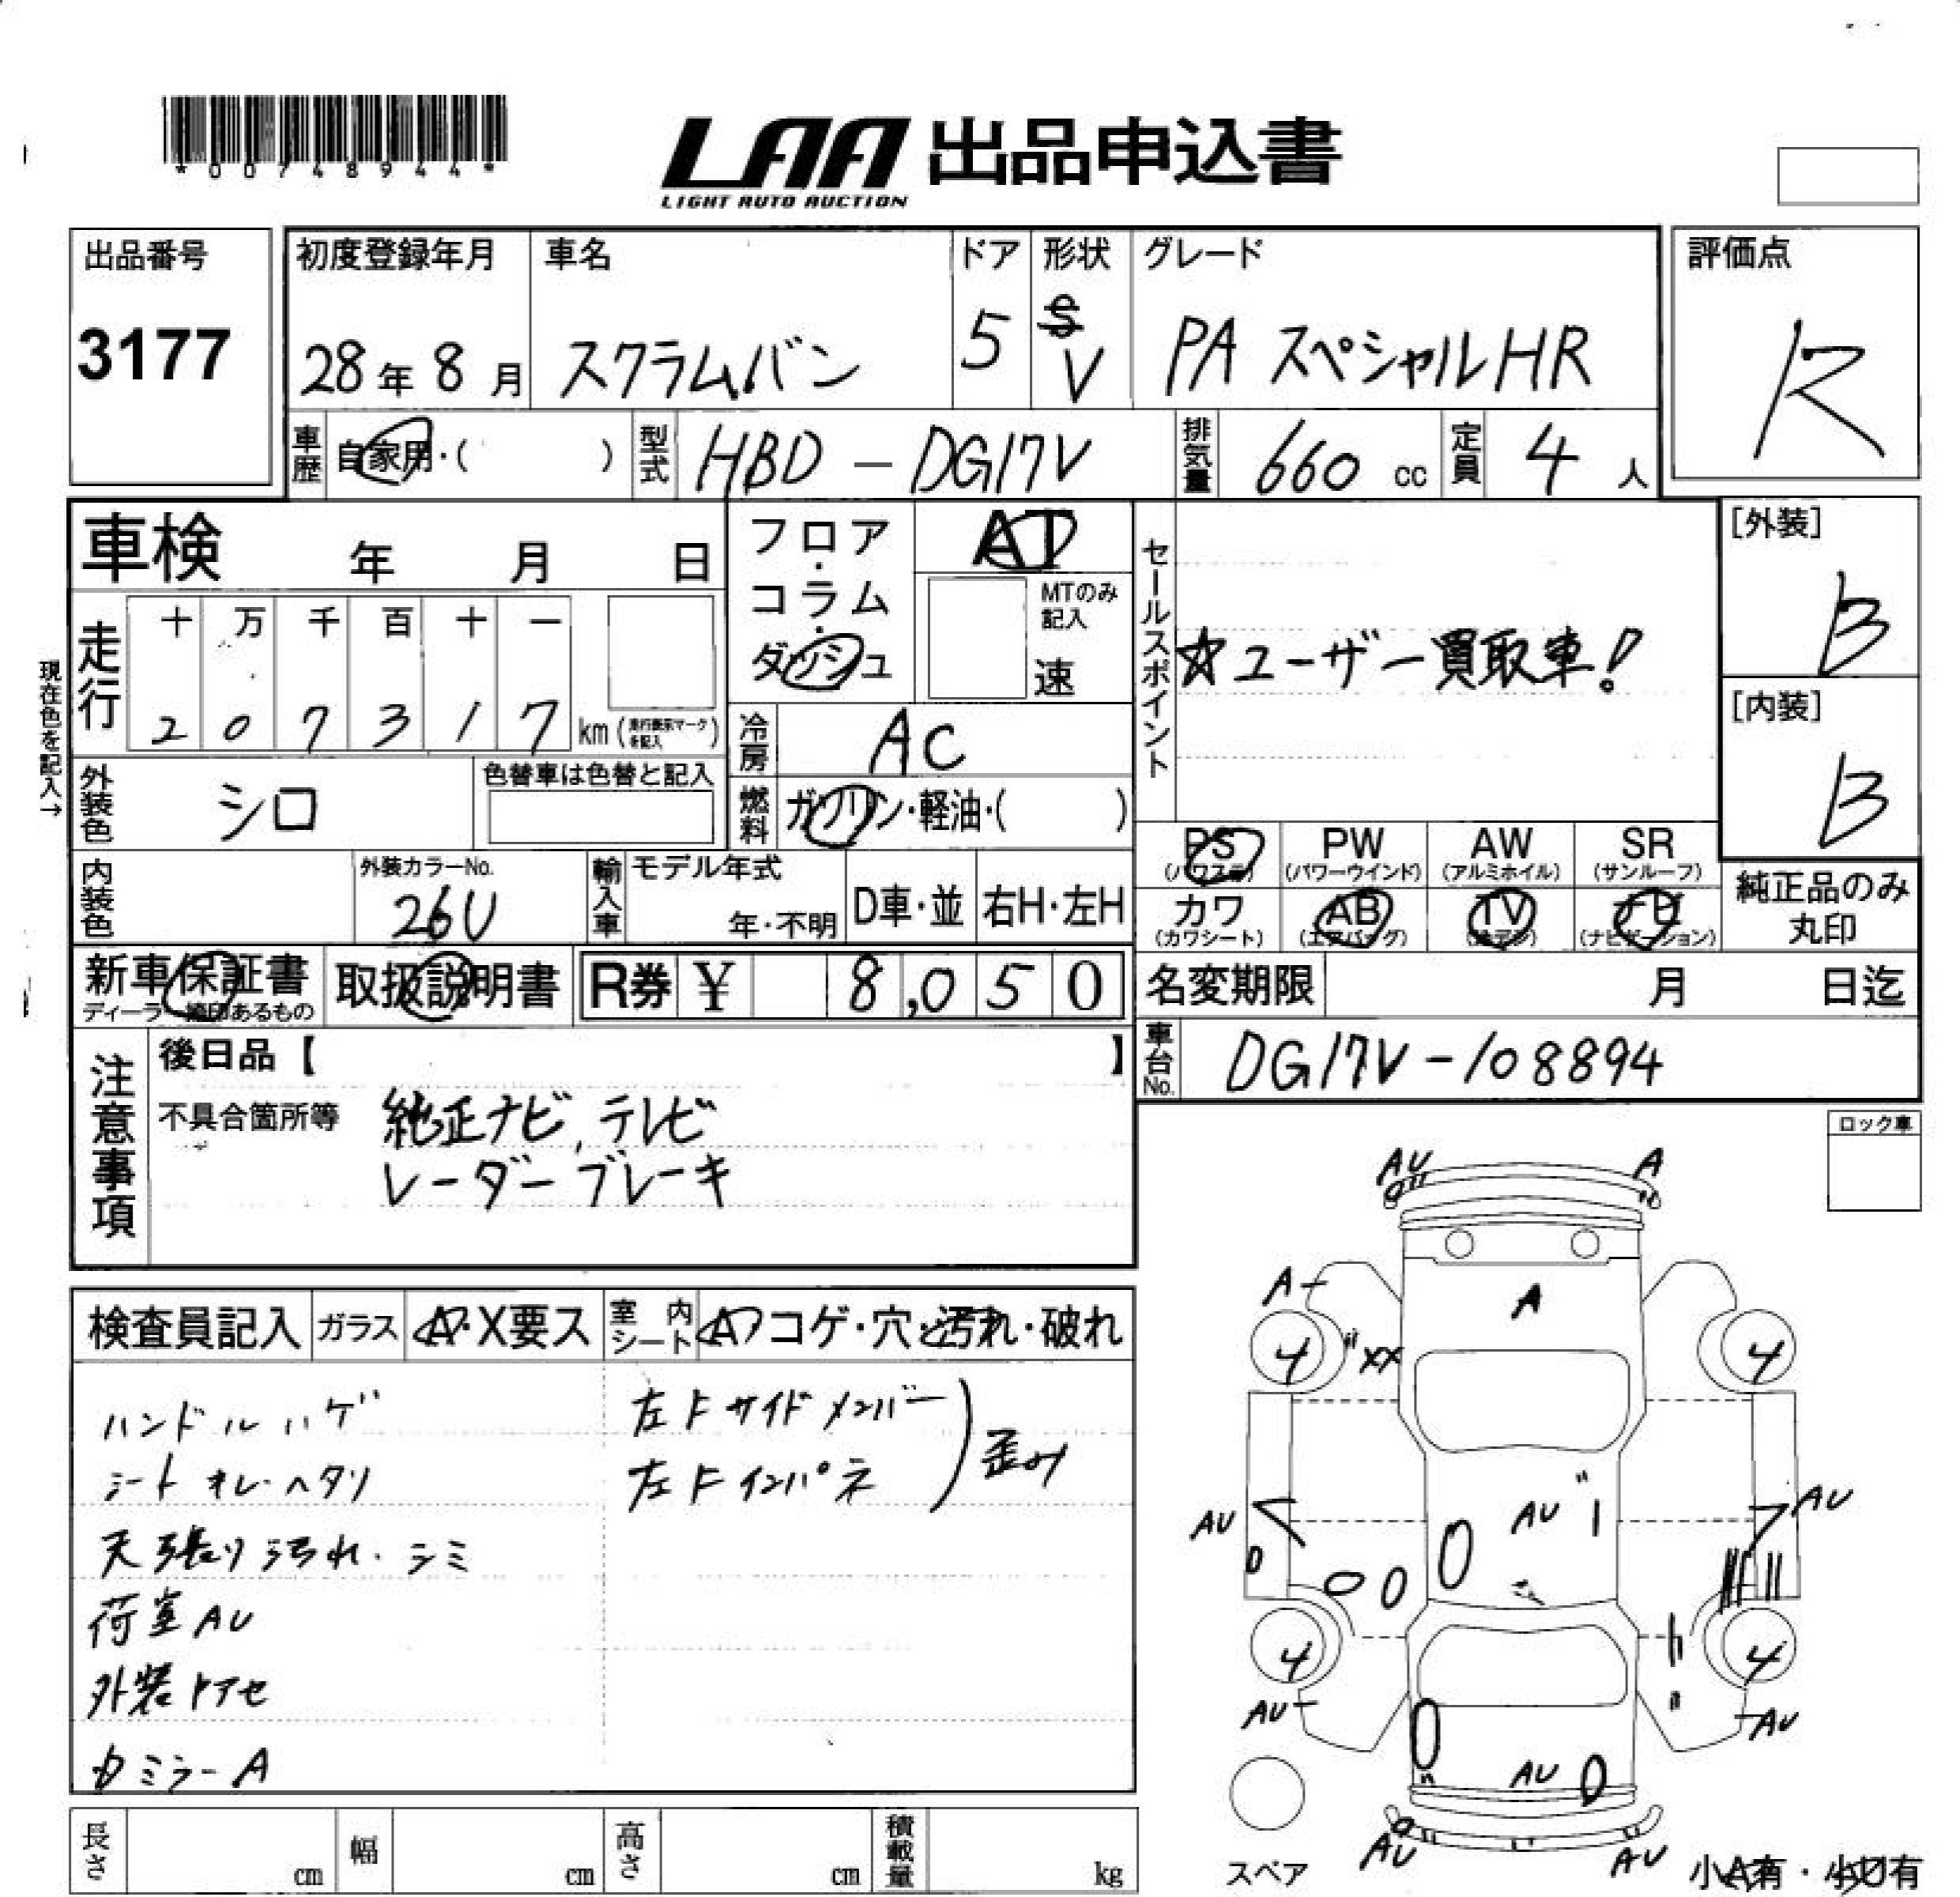 *00748944*
LAA 出品申込書
LIGHT AUTO AUCTION
出品番号
3177
初度登録年月
28年8月
車名
スクラムバン
ドア
5
形状
S
V
グレード
PA スペシャルHR
評価点
R
車歴
自家用・( )
型式
HBD - DG17V
排気量
660 cc
定員
4 人
車検 年 月 日
現在色を記入→
走行
十 万 千 百 十 一
2 0 7 3 1 7 km(走行表示マークを記入)
外装色
シロ
色替車は色替と記入
内装色
外装カラーNo.
26U
フロア・コラム・ダッシュ
AT
MTのみ記入
速
冷房
AC
燃料
ガソリン・軽油・( )
輸入車
モデル年式
年・不明
D車・並
右H・左H
セールスポイント
☆ユーザー買取車!
[外装]
B
[内装]
B
PS
(パワステ)
PW
(パワーウインド)
AW
(アルミホイル)
SR
(サンルーフ)
カワ
(カワシート)
AB
(エアバッグ)
TV
ナビ
(ナビゲーション)
純正品のみ
丸印
新車保証書
ディーラー捺印あるもの
取扱説明書
R券 ¥ 8,050
名変期限 月 日迄
車台No.
DG17V-108894
注意事項
後日品【 】
不具合箇所等
純正ナビ、テレビ
レーダーブレーキ
ロック車
検査員記入
ガラス
A・X要ス
室内シート
A コゲ・穴・汚れ・破れ
ハンドルハゲ
シートオレ・ヘタリ
天張り汚れ・シミ
荷室AU
外装トアセ
ミラーA
左Fサイドメンバー
左Fインパネ
歪み
AU
A
A
A
4
XX
4
AU
AU
AU
4
4
AU
AU
AU
AU
AU
スペア
小A有・小U有
長さ cm
幅 cm
高さ cm
積載量 kg